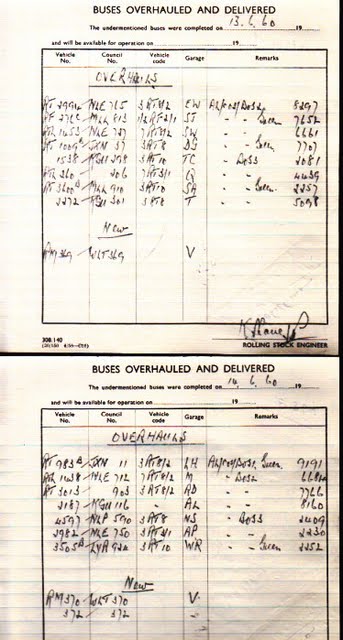 BUSES OVERHAULED AND DELIVERED
The undermentioned buses were completed on 13.6.60 19
and will be available for operation on 19
Vehicle No. Council No. Vehicle code Garage Remarks
OVERHAULS
NLE 765 3RT8/2 EW 8297
MLL 813 ST - - Green 7652
NLE 727 7RT8/2 SW - - 6661
JXN 37 3RT8 DS - - Green 7707
1538 KGU 298 3RT10 TC - Doss 2081
RT 360 206 Q - - 4439
MLL 910 3RT10 SA - - Green 2257
2272 KGU 301 3RT8 T - - 5098
New
RM 369 WLT 369 V
308.140
ROLLING STOCK ENGINEER
BUSES OVERHAULED AND DELIVERED
The undermentioned buses were completed on 14.6.60 19
and will be available for operation on 19
Vehicle No. Council No. Vehicle code Garage Remarks
OVERHAULS
JXN 11 3RT8/2 LH Green 9191
RT 1438 NLE 712 7RT8/2 M - Doss
RT 3013 903 3RT8/2 AD - - 7766
2187 KGU 116 - AL - - 8160
4597 NLP 590 3RT8 NS - Doss 2409
2982 NLE 750 AP - - 2230
3505 LYR 922 3RT10 WR - - Green 2252
New
RM 370 WLT 370 V
372 372 -